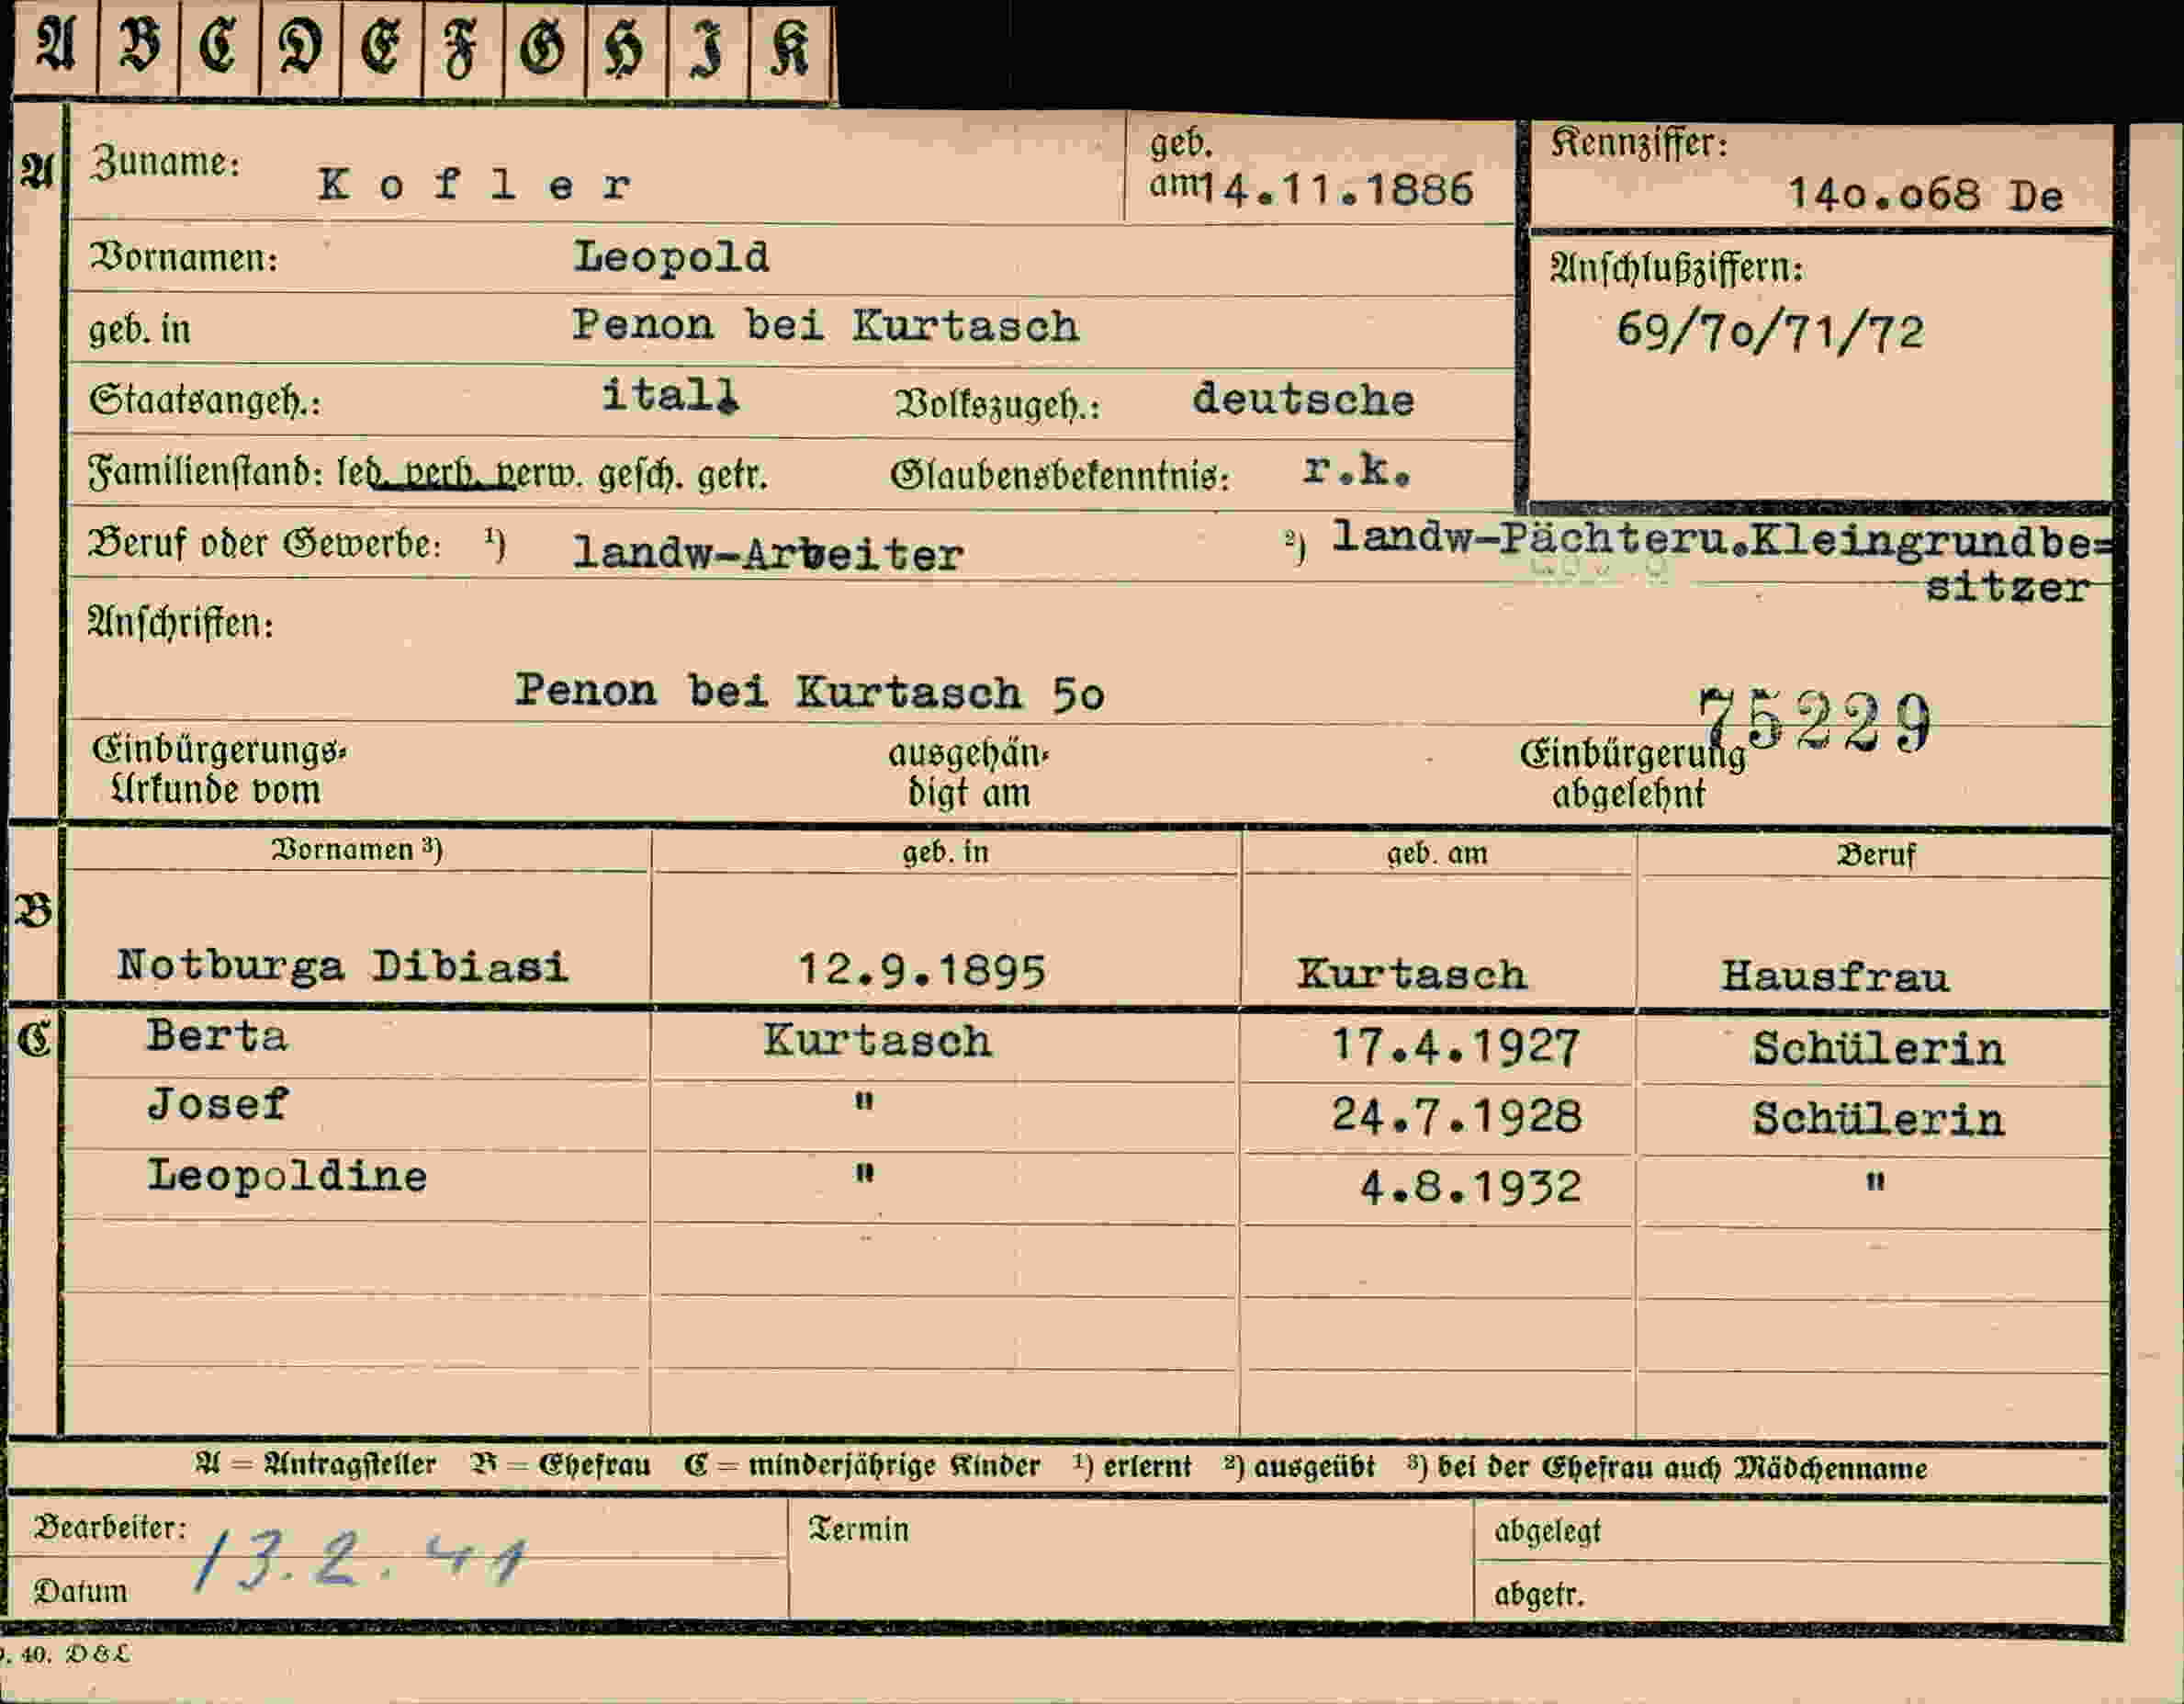 A B C D E F G H I K
A Zuname: Kofler geb. am 14.11.1886 Kennziffer: 14o.o68 De
Vornamen: Leopold Anschlußziffern:
geb. in Penon bei Kurtasch 69/7o/71/72
Staatsangeh.: ital. Volkszugeh.: deutsche
Familienstand: led. verh. verw. gesch. getr. Glaubensbekenntnis: r.k.
Beruf oder Gewerbe: 1) landw-Arbeiter 2) landw-Pächteru.Kleingrundbe=
sitzer
Anschriften:
Penon bei Kurtasch 5o 75229
Einbürgerungs- ausgehän- Einbürgerung
Urkunde vom digt am abgelehnt
Vornamen 3) geb. in geb. am Beruf
B
Notburga Dibiasi 12.9.1895 Kurtasch Hausfrau
C Berta Kurtasch 17.4.1927 Schülerin
Josef " 24.7.1928 Schülerin
Leopoldine " 4.8.1932 "
A = Antragsteller B = Ehefrau C = minderjährige Kinder 1) erlernt 2) ausgeübt 3) bei der Ehefrau auch Mädchenname
Bearbeiter: Termin abgelegt
13.2.41
Datum abgetr.
. 40. D & L